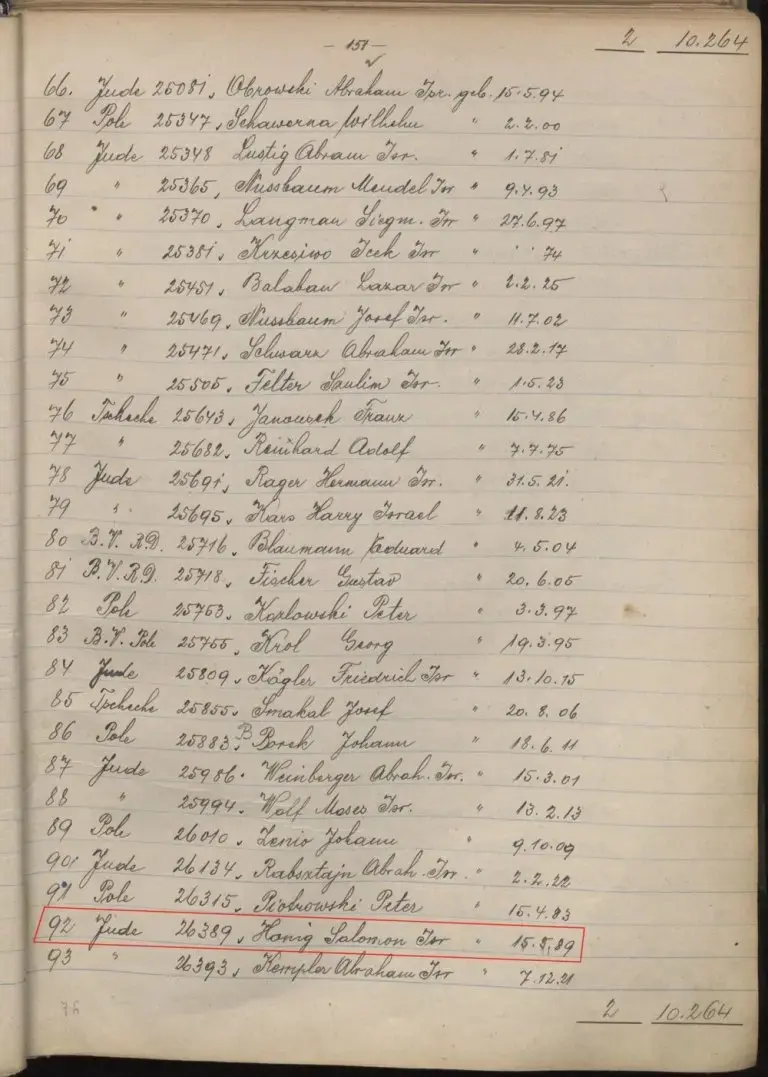 - 151 -
2 10.264
66. Jude 25081, Obrowski Abraham Isr. geb. 15.5.94
67 Pole 25347, Schawerna Wilhelm " 2.2.00
68 Jude 25348 Lustig Abram Isr. " 1.7.81
69 " 25365, Nussbaum Mendel Isr " 9.4.93
70 " 25370, Langman Siegm. Isr " 27.6.97
71 " 25381, Krzesiwo Icek Isr " " " 74
72 " 25451, Balaban Lazar Isr " 2.2.25
73 " 25469, Nussbaum Josef Isr. " 11.7.02
74 " 25471, Schwarz Abraham Isr " 28.2.17
75 " 25505, Felter Saulim Isr. " 1.5.23
76 Tscheche 25643, Janousek Franz " 15.4.86
77 " 25682, Reinhard Adolf " 7.7.75
78 Jude 25691, Rager Hermann Isr. " 31.5.21.
79 " 25695, Kars Harry Israel " 11.8.23
80 B.V. R.D. 25716, Blaumann Eduard " 4.5.04
81 B.V.R.D. 25718, Fischer Gustav " 20.6.05
82 Pole 25753, Kozlowski Peter " 3.3.97
83 B.V. Pole 25755, Krol Georg " 19.3.95
84 Jude 25809, Kögler Friedrich Isr " 13.10.15
85 Tscheche 25855, Smakal Josef " 20.8.06
86 Pole 25883, B Borek Johann " 18.6.11
87 Jude 25986. Weinberger Abrah. Isr. " 15.3.01
88 " 25994. Wolf Moses Isr. " 13.2.13
89 Pole 26010, Zenio Johann " 9.10.09
90 Jude 26134, Rabsztajn Abrah. Isr. " 2.2.22
91 Pole 26315, Piotrowski Peter " 15.4.83
92 Jude 26389, Honig Salomon Isr " 15.8.89
93 " 26393, Kempler Abraham Isr " 7.12.21
76
2 10.264